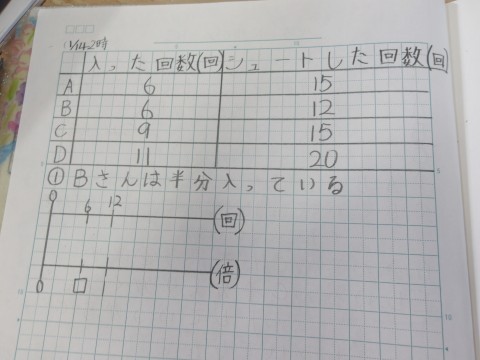 入った回数(回) シュートした回数(回)
A 6 15
B 6 12
C 9 15
D 11 20
① Bさんは半分入っている
0 6 12 (回)
0 □ (倍)